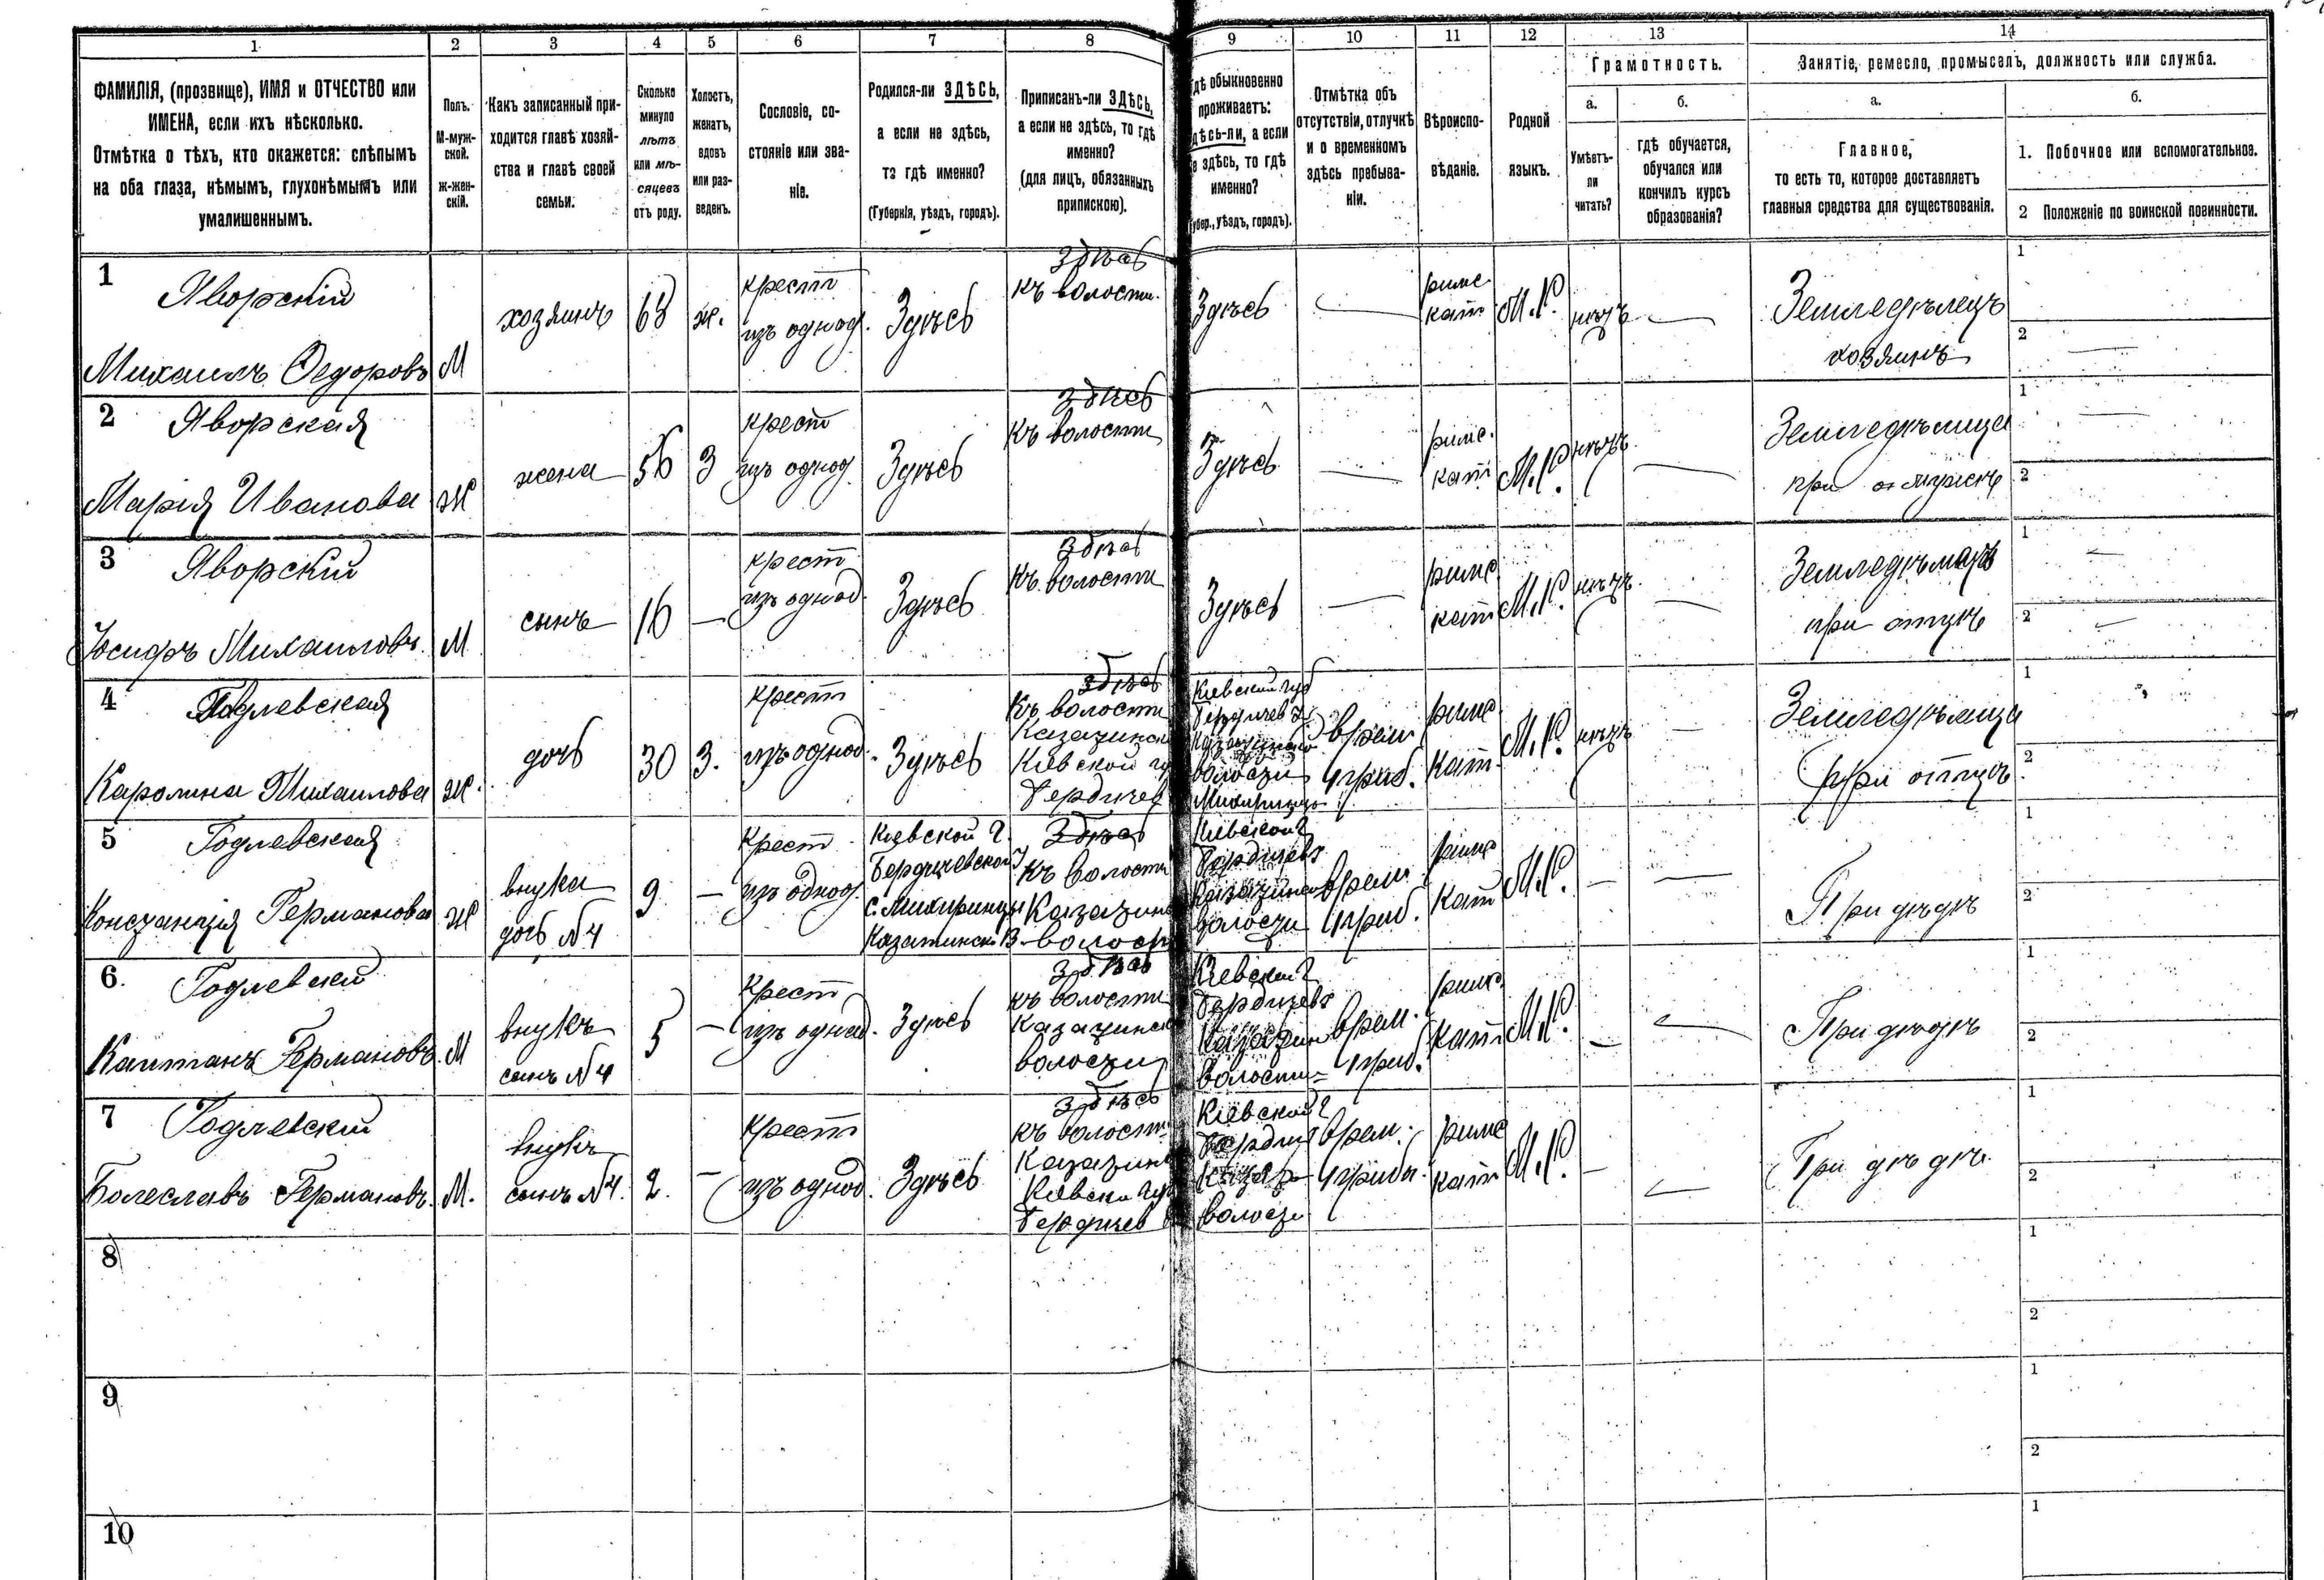 1 2 3 4 5 6 7 8 9 10 11 12 13 14
ФАМИЛІЯ, (прозвище), ИМЯ и ОТЧЕСТВО или
ИМЕНА, если ихъ нѣсколько.
Отмѣтка о тѣхъ, кто окажется: слѣпымъ
на оба глаза, нѣмымъ, глухонѣмымъ или
умалишеннымъ.
Полъ.
М-муж-
ской.
ж-жен-
скій.
Какъ записанный при-
ходится главѣ хозяй-
ства и главѣ своей
семьи.
Сколько
минуло
лѣтъ
или мѣ-
сяцевъ
отъ роду.
Холостъ,
женатъ,
вдовъ
или раз-
веденъ.
Сословіе, со-
стояніе или зва-
ніе.
Родился-ли ЗДѢСЬ,
а если не здѣсь,
то гдѣ именно?
(Губернія, уѣздъ, городъ).
Приписанъ-ли ЗДѢСЬ,
а если не здѣсь, то гдѣ
именно?
(для лицъ, обязанныхъ
припискою).
гдѣ обыкновенно
проживаетъ:
здѣсь-ли, а если
не здѣсь, то гдѣ
именно?
(Губер., уѣздъ, городъ).
Отмѣтка объ
отсутствіи, отлучкѣ
и о временномъ
здѣсь пребыва-
ніи.
Вѣроиспо-
вѣданіе.
Родной
языкъ.
Грамотность.
а.
Умѣетъ-
ли
читать?
б.
гдѣ обучается,
обучался или
кончилъ курсъ
образованія?
Занятіе, ремесло, промыселъ, должность или служба.
а.
Главное,
то есть то, которое доставляетъ
главныя средства для существованія.
б.
1. Побочное или вспомогательное.
2 Положеніе по воинской повинности.
1 Яворскій
Михаилъ Федоровъ
М
хозяинъ
68
ж.
крест
изъ однод.
Здѣсь
Здѣсь
къ волости.
Здѣсь
—
римс.
кат
М.Р.
нѣтъ
—
Земледѣлецъ
хозяинъ
1
2 —
2 Яворская
Марія Иванова
Ж
жена
56
З
крест
изъ однод.
Здѣсь
Здѣсь
Къ волости
Здѣсь
—
римс.
кат
М.Р.
нѣтъ
—
Земледѣлица
при мужѣ
1 —
2
3 Яворскій
Іосифъ Михаиловъ.
М
сынъ
16
—
крест
изъ однод.
Здѣсь
Здѣсь
Къ волости
Здѣсь
—
римс
кат
М.Р.
нѣтъ
—
при отцѣ
1 —
2 —
4 Годлевская
Каролина Михаилова
Ж.
дочь
30
З.
крест
изъ однод.
Здѣсь
Здѣсь
Къ волости
Кіевской гу
Бердичев
врем
приб.
римс
кат.
М.Р.
нѣтъ
—
Земледѣлица
при отцѣ
1
2
5 Годлевская
Констанція Германова
Ж
внука
дочь №4
9
—
Крест
изъ однод.
Кіевской г.
Бердичевской у
с. Махиринцы
Здѣсь
къ волости
Кіевской г
врем
приб.
римс
кат
М.Р.
—
—
При дѣдѣ
1
2
6. Годлевскій
Каитанъ Германовъ.
М
внукъ
сынъ №4
5
—
Крест
изъ однод.
Здѣсь
Здѣсь
къ волости
волости
волости
врем.
приб.
римс.
кат
М.Р.
—
—
При дѣдѣ
1
2
7 Годлевскій
Болеславъ Германовъ.
М.
внукъ
сынъ №4.
2.
—
Крест
изъ однод.
Здѣсь
Здѣсь
къ волости
Бердичев
Кіевской г
волости
врем.
римс
кат
М.Р.
—
—
При дѣдѣ.
1
2
8
1
2
9
1
2
10
1